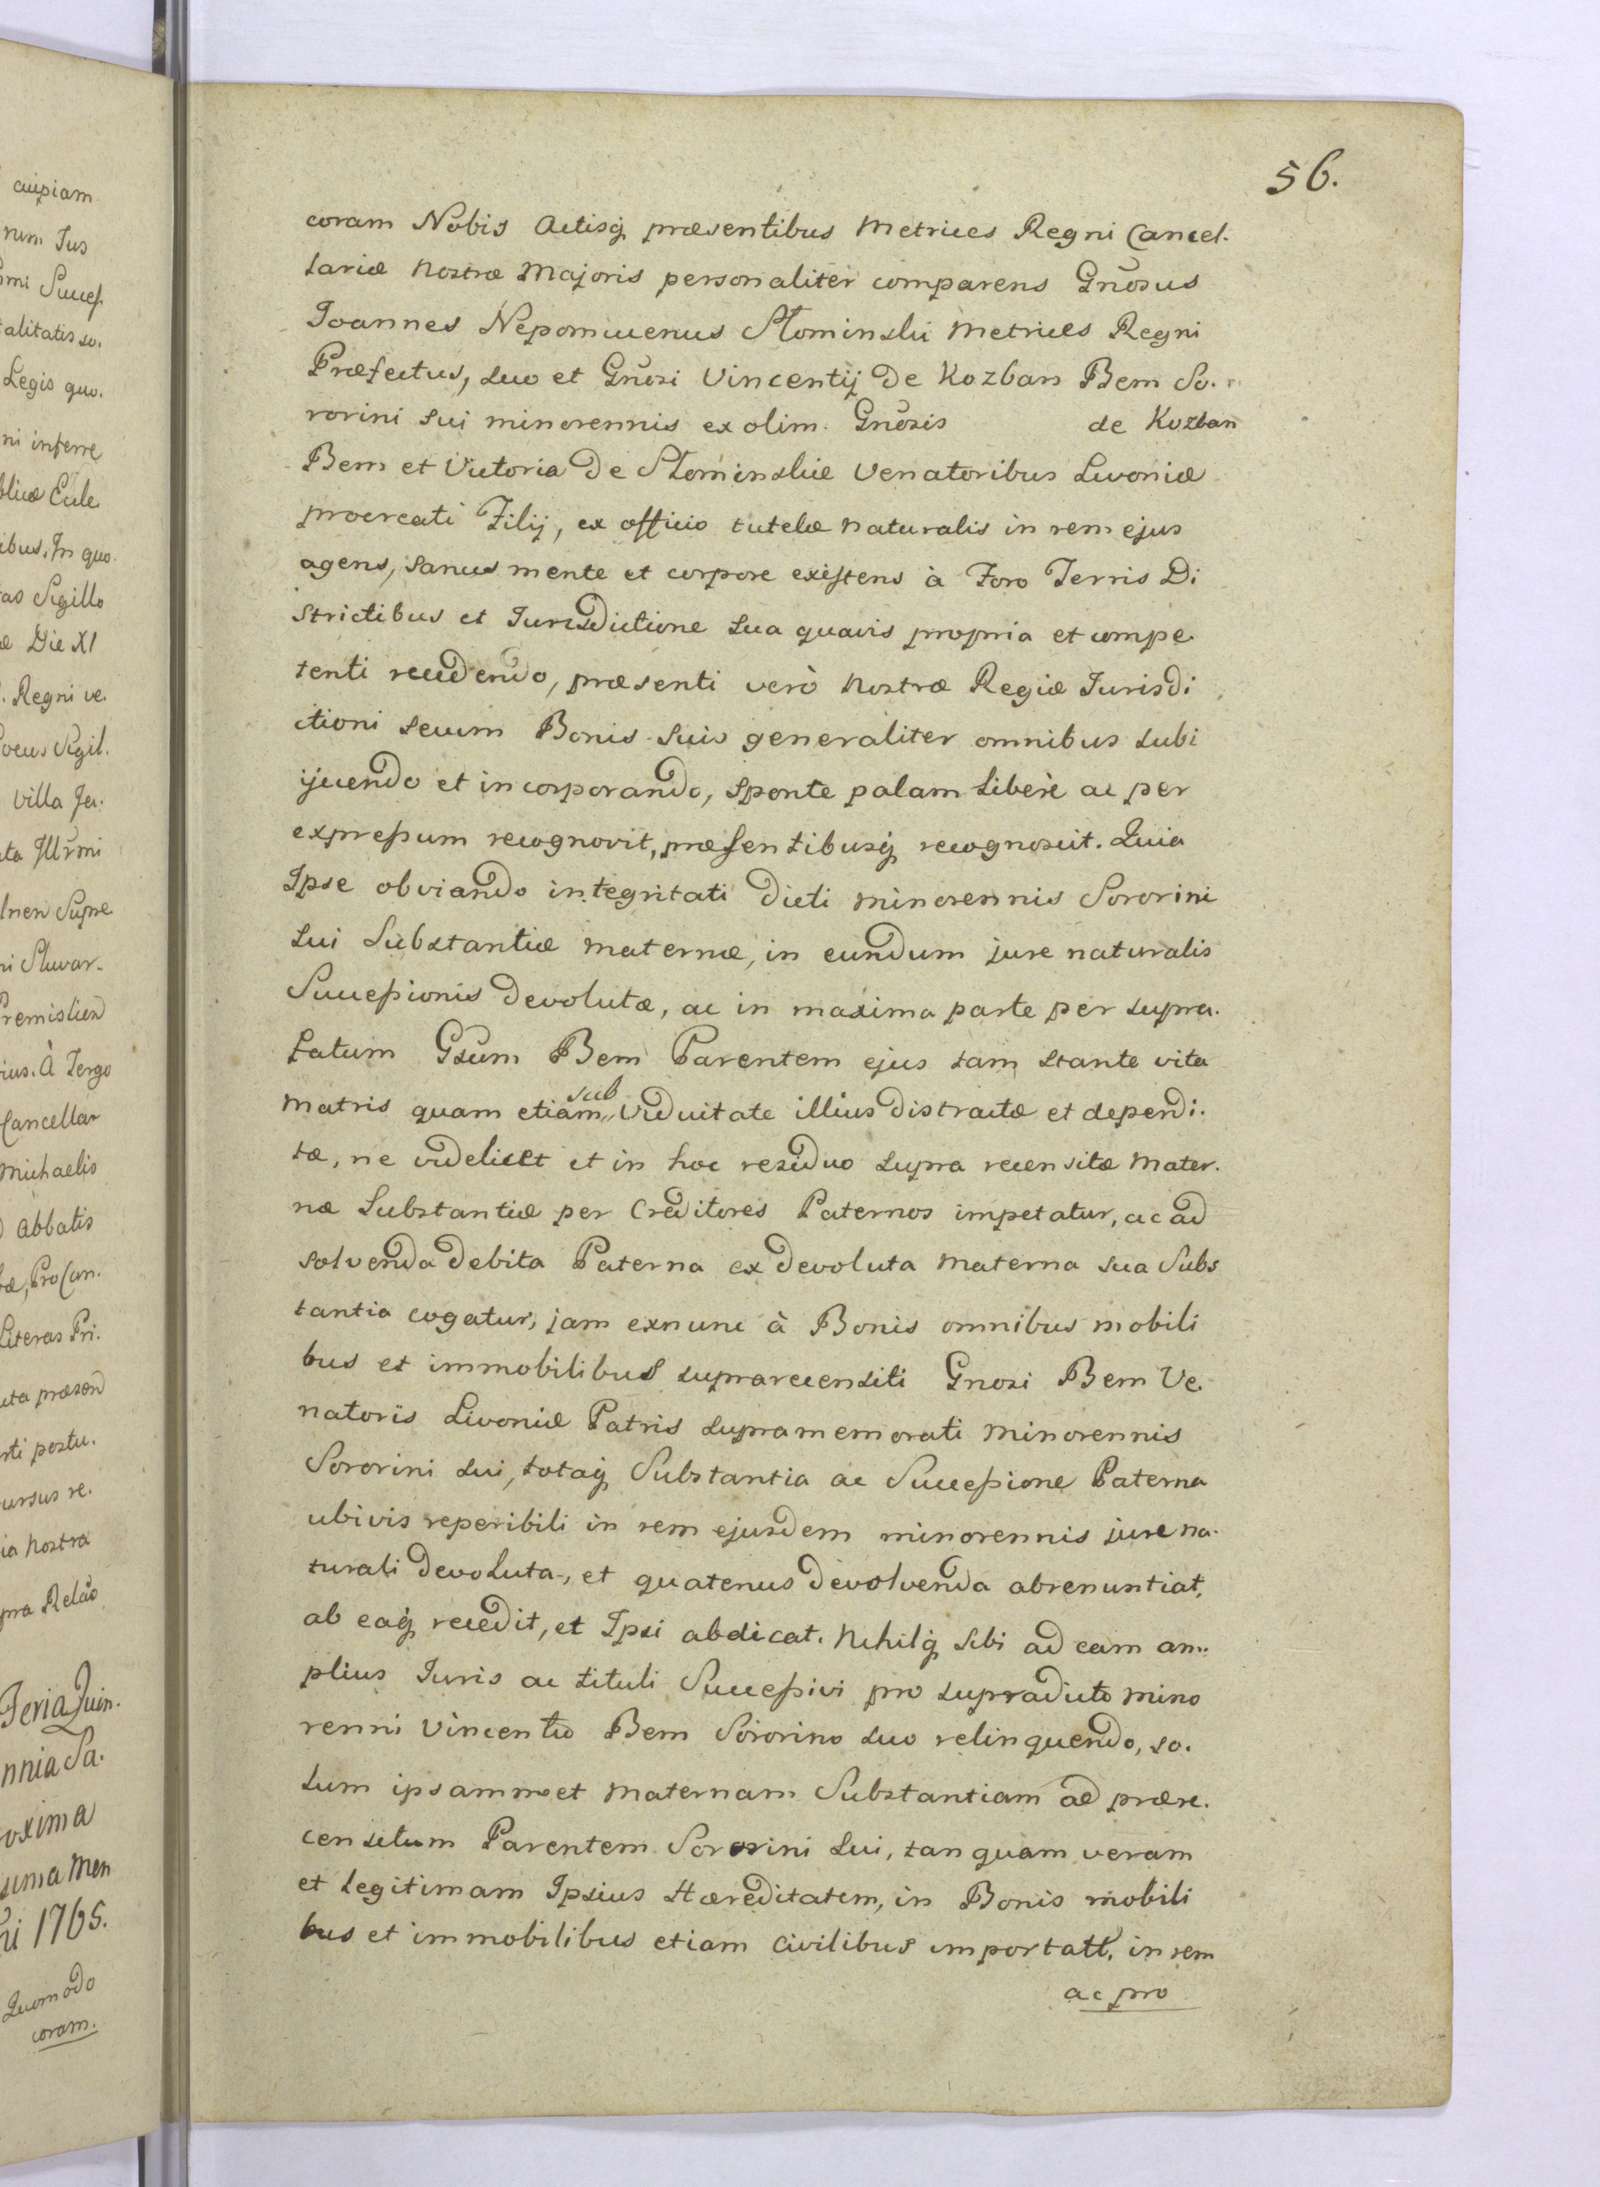 56.
coram Nobis Actisq́ præsentibus Metrices Regni Cancel.
lariæ Nostræ Majoris personaliter comparens Gn̄osus
Joannes Nepomucenus Słominski Metrices Regni
Præfectus, suo et Gn̄osi Vincentij de Kozban Bem So.
rorini sui minorennis ex olim Gn̄osis de Kozban
Bem et Victoria de Słominskie Venatoribus Livoniæ
procreati Filij, ex officio tutelæ naturalis in rem ejus
agens, sanus mente et corpore existens à Foro Terris Di
strictibus et Jurisdictione sua quavis propria et compe
tenti recedendo, præsenti verò Nostræ Regiæ Jurisdi
ctioni secum Bonis suis generaliter omnibus subi
jiciendo et incorporando, sponte palam liberè ac per
expressum recognovit, præsentibusq́ recognoscit. Quia
Ipse obviando integritati dicti minorennis Sororini
sui Substantiæ maternæ, in eundum jure naturalis
Successionis devolutæ, ac in maxima parte per supra.
latum Gsum Bem Parentem ejus tam stante vita
matris quam etiam sub viduitate illius distractæ et dependi.
tæ, ne videlicet et in hoc residuo supra recensitæ Mater.
næ Substantiæ per Creditores Paternos impetatur, ac ad
solvenda debita Paterna ex devoluta Materna sua Subs
tantia cogatur, jam exnunc à Bonis omnibus mobili
bus et immobilibus suprarecensiti Gnosi Bem Ve.
natoris Livoniæ Patris supramemorati Minorennis
Sororini sui, totaq́ Substantia ac Successione Paterna
ubivis reperibili in rem ejusdem minorennis jure na.
turali devoluta, et quatenus devolvenda abrenuntiat,
ab eaq́ recedit, et Ipsi abdicat. Nihilq́ sibi ad eam am.
plius Juris ac tituli Successivi pro supradicto mino
renni Vincentio Bem Sororino suo relinquendo, so.
lum ipsammet Maternam Substantiam ad prære.
censitum Parentem Sororini sui, tanquam veram
et legitimam Ipsius Hæreditatem, in Bonis mobili
bus et immobilibus etiam civilibus importatt. in rem
ac pro